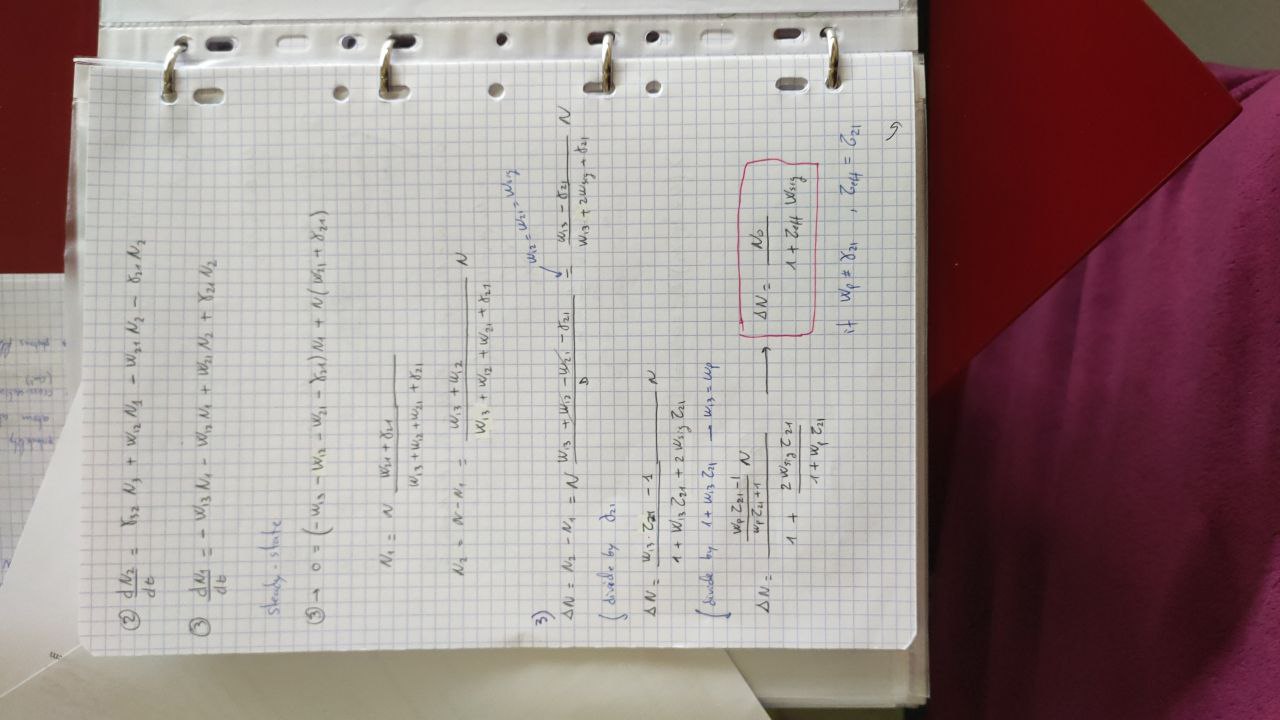 ② dN₂/dt = γ₃₂ N₃ + W₁₂ N₁ - W₂₁ N₂ - γ₂₁ N₂
③ dN₁/dt = - W₁₃ N₁ - W₁₂ N₁ + W₂₁ N₂ + γ₂₁ N₂
steady-state
③ → 0 = (-W₁₃ - W₁₂ - W₂₁ - γ₂₁) N₁ + N (W₂₁ + γ₂₁)
N₁ = N (W₂₁ + γ₂₁)/(W₁₃ + W₁₂ + W₂₁ + γ₂₁)
N₂ = N - N₁ = (W₁₃ + W₁₂)/(W₁₃ + W₁₂ + W₂₁ + γ₂₁) N
W₁₂ = W₂₁ = Wsig
3)
ΔN = N₂ - N₁ = N (W₁₃ + W₁₂ - W₂₁ - γ₂₁)/D = (W₁₃ - γ₂₁)/(W₁₃ + 2Wsig + γ₂₁) N
divide by γ₂₁
ΔN = (W₁₃ · τ₂₁ - 1)/(1 + W₁₃ τ₂₁ + 2 Wsig τ₂₁) N
divide by 1 + W₁₃ τ₂₁ → W₁₃ = Wp
ΔN = ((Wp τ₂₁ - 1)/(Wp τ₂₁ + 1) N)/(1 + (2 Wsig τ₂₁)/(1 + Wp τ₂₁)) → ΔN = N₀/(1 + τeff Wsig)
if Wp ≠ γ₂₁ , τeff = τ₂₁